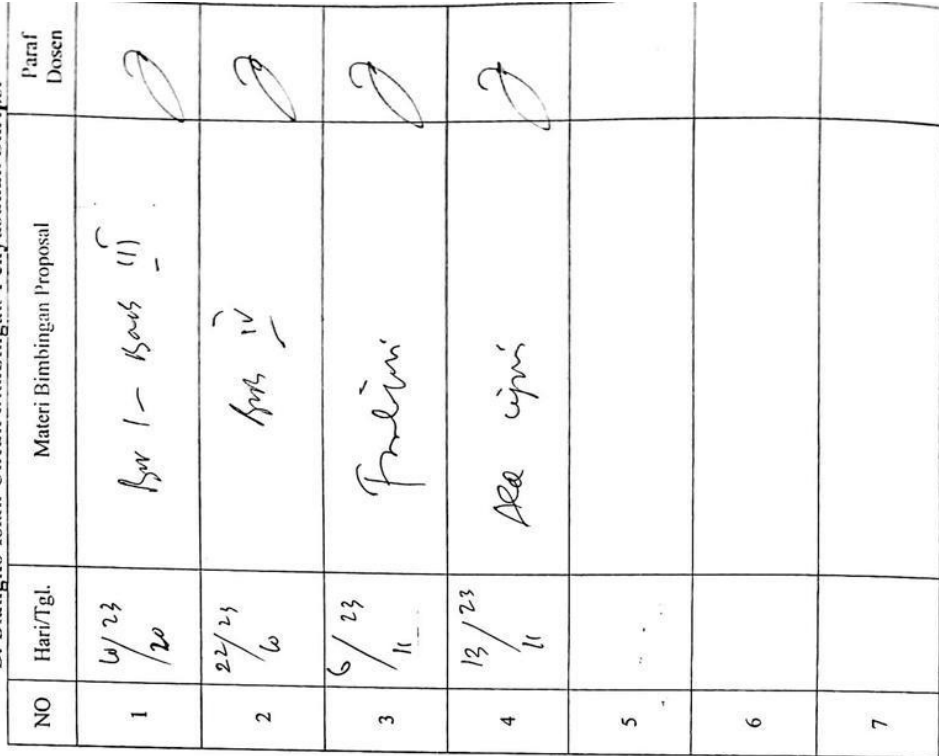 NO Hari/Tgl. Materi Bimbingan Proposal Paraf
Dosen
1 Bab I - Bab III
2 22/10 23 Bab IV
3 6/11 23
4 13/11 23 Acc ujian
5
6
7